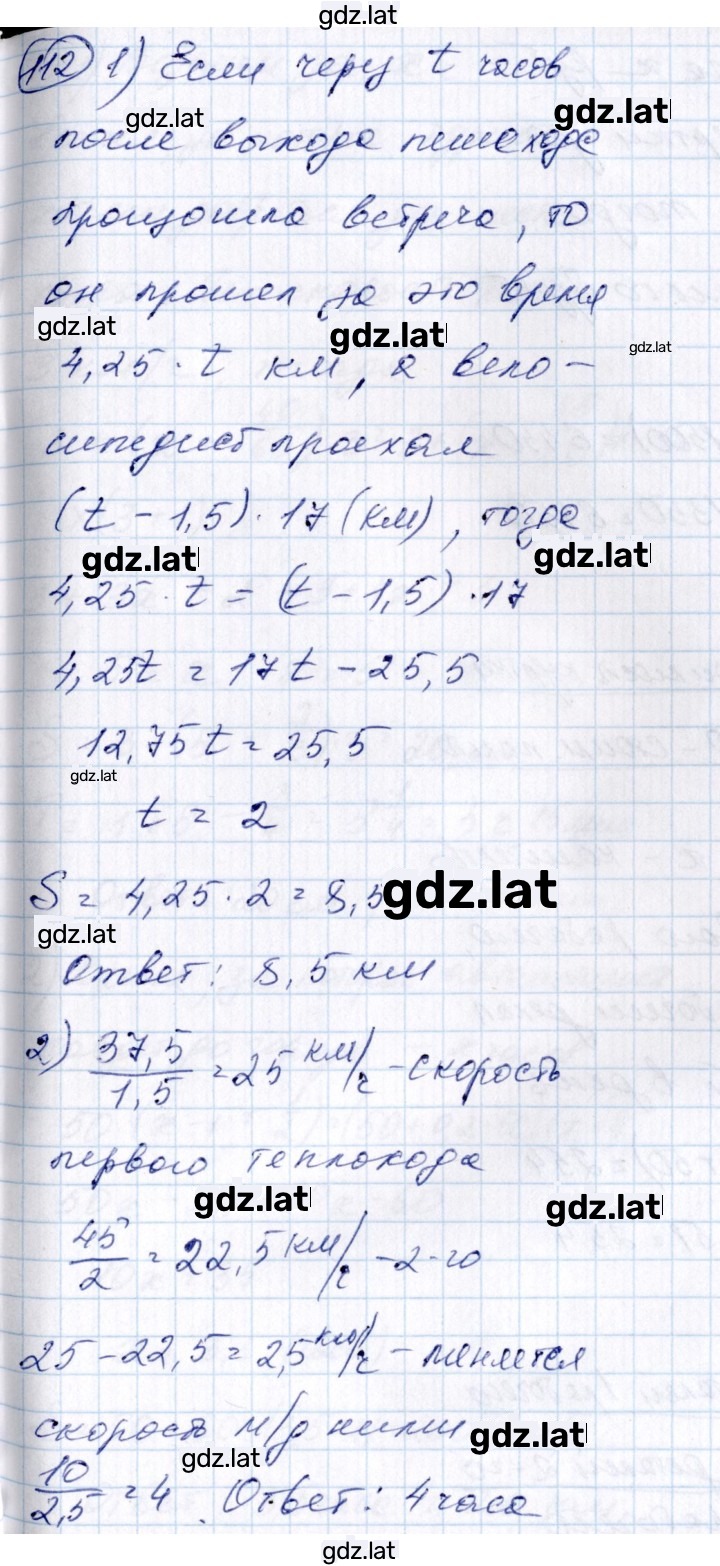 gdz.lat
112 1) Если через t часов
gdz.lat gdz.lat
после выхода пешехода
произошла встреча, то
он прошел за это время
gdz.lat gdz.lat gdz.lat
4,25 · t км, а вело-
сипедист проехал
(t - 1,5) · 17 (км), тогда
gdz.lat gdz.lat
4,25 · t = (t - 1,5) · 17
4,25t = 17t - 25,5
12,75t = 25,5
gdz.lat
t = 2
S = 4,25 · 2 = 8,5 gdz.lat
gdz.lat
Ответ: 8,5 км
2) 37,5/1,5 = 25 км/ч - скорость
первого теплохода
gdz.lat gdz.lat
45/2 = 22,5 км/ч - 2-го
25 - 22,5 = 2,5 км/ч - меняется
скорость м/д ними gdz.lat
gdz.lat
10/2,5 = 4. Ответ: 4 часа
gdz.lat